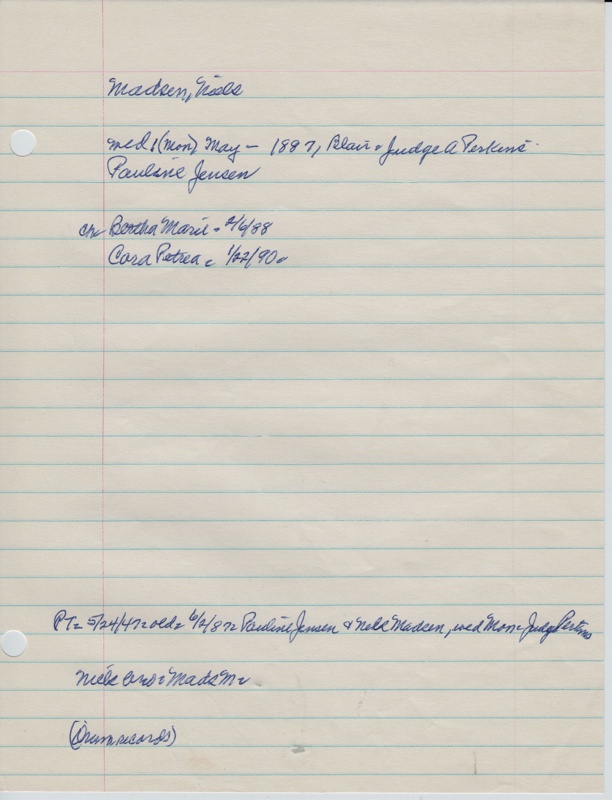 Madsen, Niels
wed, (Mon) May - 1887, Blair - Judge A Perkins
Pauline Jensen
ch: Bertha Marie - 2/6/88
Cora Petrea - 1/22/90
PT= 5/24/47= old= 6/2/87= Pauline Jensen & Nels Madsen, wed Mon= Judge Perkins
Niels Mads
(Drum records)